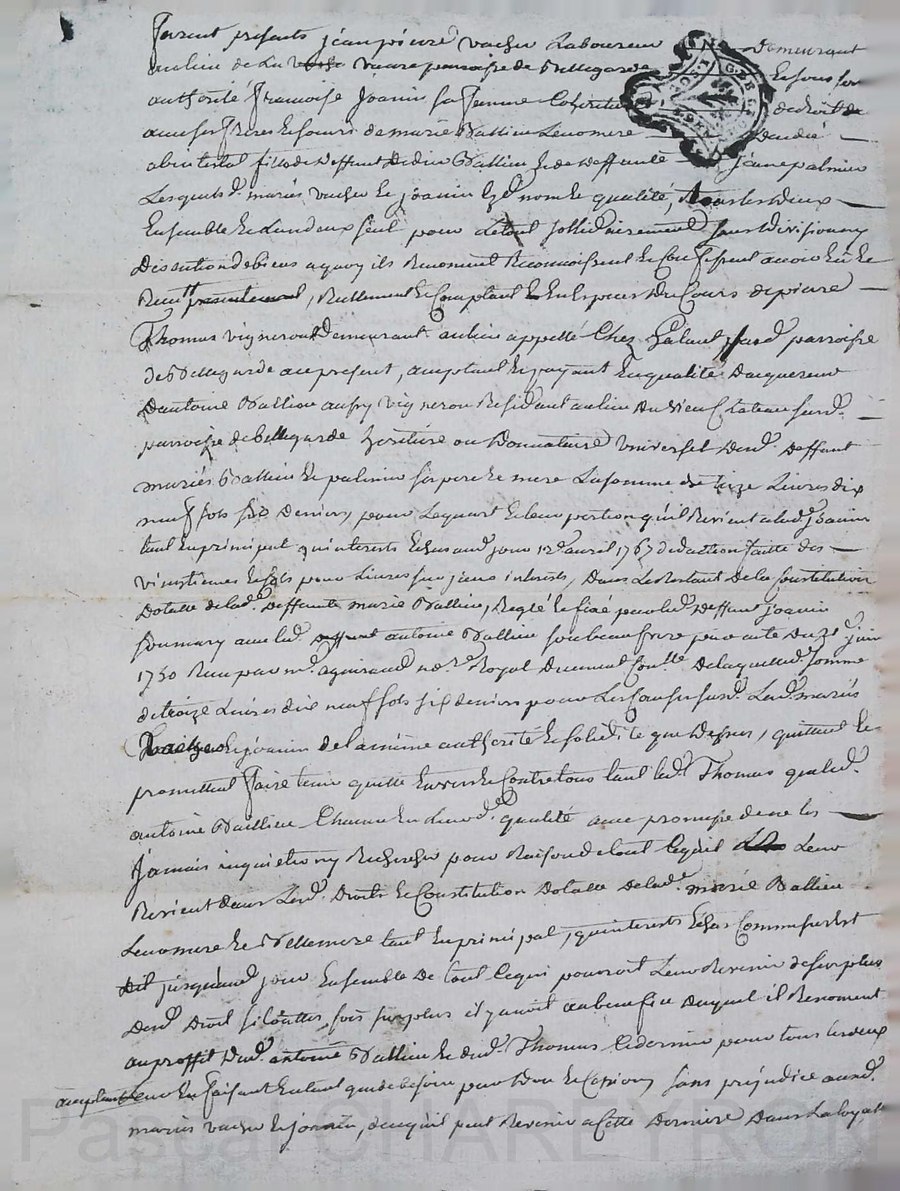 furent presents jean pierre vacher Laboureur demeurant
au lieu de La vaure parroisse de Bellegarde Et sous son
authorité françoise Joanin sa femme Coheritiere de droit
avec ses freres Et sœurs de marie Dallieu Leur mere
abintestat fille de deffunt Dallieu Et de deffunte jeane palmier
Lesquels mariés vacher Et joanin nom Et qualité, tous Les deux
Ensemble Et L'un d'eux seul pour Le tout sollidairement sans division ny
Discution de biens a quoy ils Renoncent Reconnoissent Et Confessent avoir Eu Et
Reçu presentement, Reellement Et Comptant En Especes Du Cours de pierre
Thomas vigneron demeurant au lieu appellé Chez Galand parroisse
de Bellegarde au present, acceptant Et payant En qualité D'acquereur
D'antoine Dallieu aussy vigneron Residant au lieu Du vieux Chateau
parroisse de bellegarde heritier ou Donnataire Universel Desd. Deffunt
mariés Dallieu Et palmier ses pere Et mere La somme de treize Livres dix
neuf sols six Deniers, pour Le quart Et Leur portion qu'il Revient a lad. joanin
tant En principal qu'interets Echus jour 12 avril 1767 deduction faitte des
vingtiemes Et sols pour Livres sur iceux interets, Dans Le Restant De la Constitution
Dotalle de lad. Deffunte marie Dallieu, Reglé Et fixé par led. Deffunt joanin
son mary avec led. antoine Dallieu son beau frere par acte du juin
1750 Reçu par me. aguiraud nore. Royal De laquelle somme
de treize Livres dix neuf sols six deniers pour Les Causes susd. Lesd. mariés
vacher Et joanin de La meme authorité Et solidité que Dessus, quittent Et
promettent faire tenir quitte Envers Et Contre tous tant led. Thomas que led.
antoine Dallieu Chacun En Leur d. qualité avec promesse de ne Les
jamais inquietter ny Rechercher pour Raison de tout Ce qu'il Leur
Revient Dans Lesd. Droits Et Constitution Dotalle de lad. marie Dallieu
Leur mere Et Belle mere tant En principal, qu'interets Echus Comme sus Est
Dit jusqu'aud. jour Ensemble De tout Ce qui pourroit Leur Revenir de surplus
Desd. Droit si toutes fois surplus il y avoit au benefice Duquel il Renoncent
au proffit Dud. antoine Dallieu Et dud. Thomas Ce dernier pour tous Les deux
acceptant En faisant En tant que de besoin pour Don Et Cession sans prejudice auxd.
mariés vacher Et joanin, de ce qu'il peut Revenir a Cette Derniere Dans La
Pascal CHAREYRON